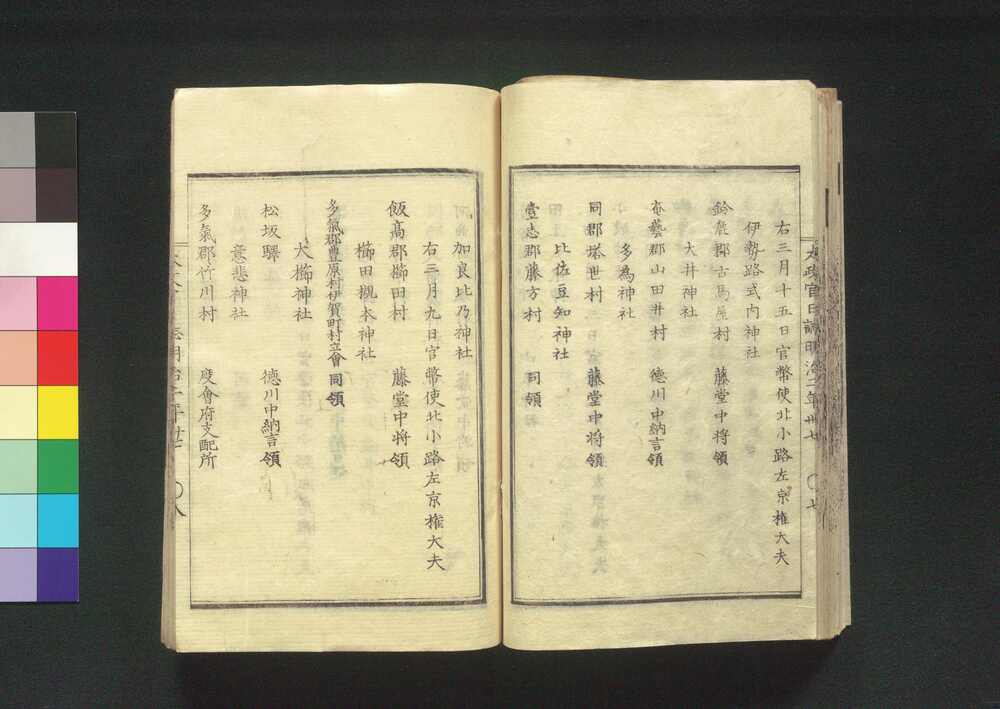 太政官日誌明治二年 卅七 〇七
右三月十五日官幣使北小路左京権大夫
伊勢路式内神社
鈴鹿郡古馬屋村 藤堂中将領
大井神社
奄藝郡山田井村 徳川中納言領
多為神社
同郡塔世村 藤堂中将領
比佐豆知神社
壹志郡藤方村 同領
加良比乃神社
右三月九日官幣使北小路左京権大夫
飯高郡櫛田村 藤堂中将領
櫛田槻本神社
多氣郡豊原村伊賀町村立會 同領
大櫛神社
松坂驛 徳川中納言領
意悲神社
多氣郡竹川村 度會府支配所
〇八